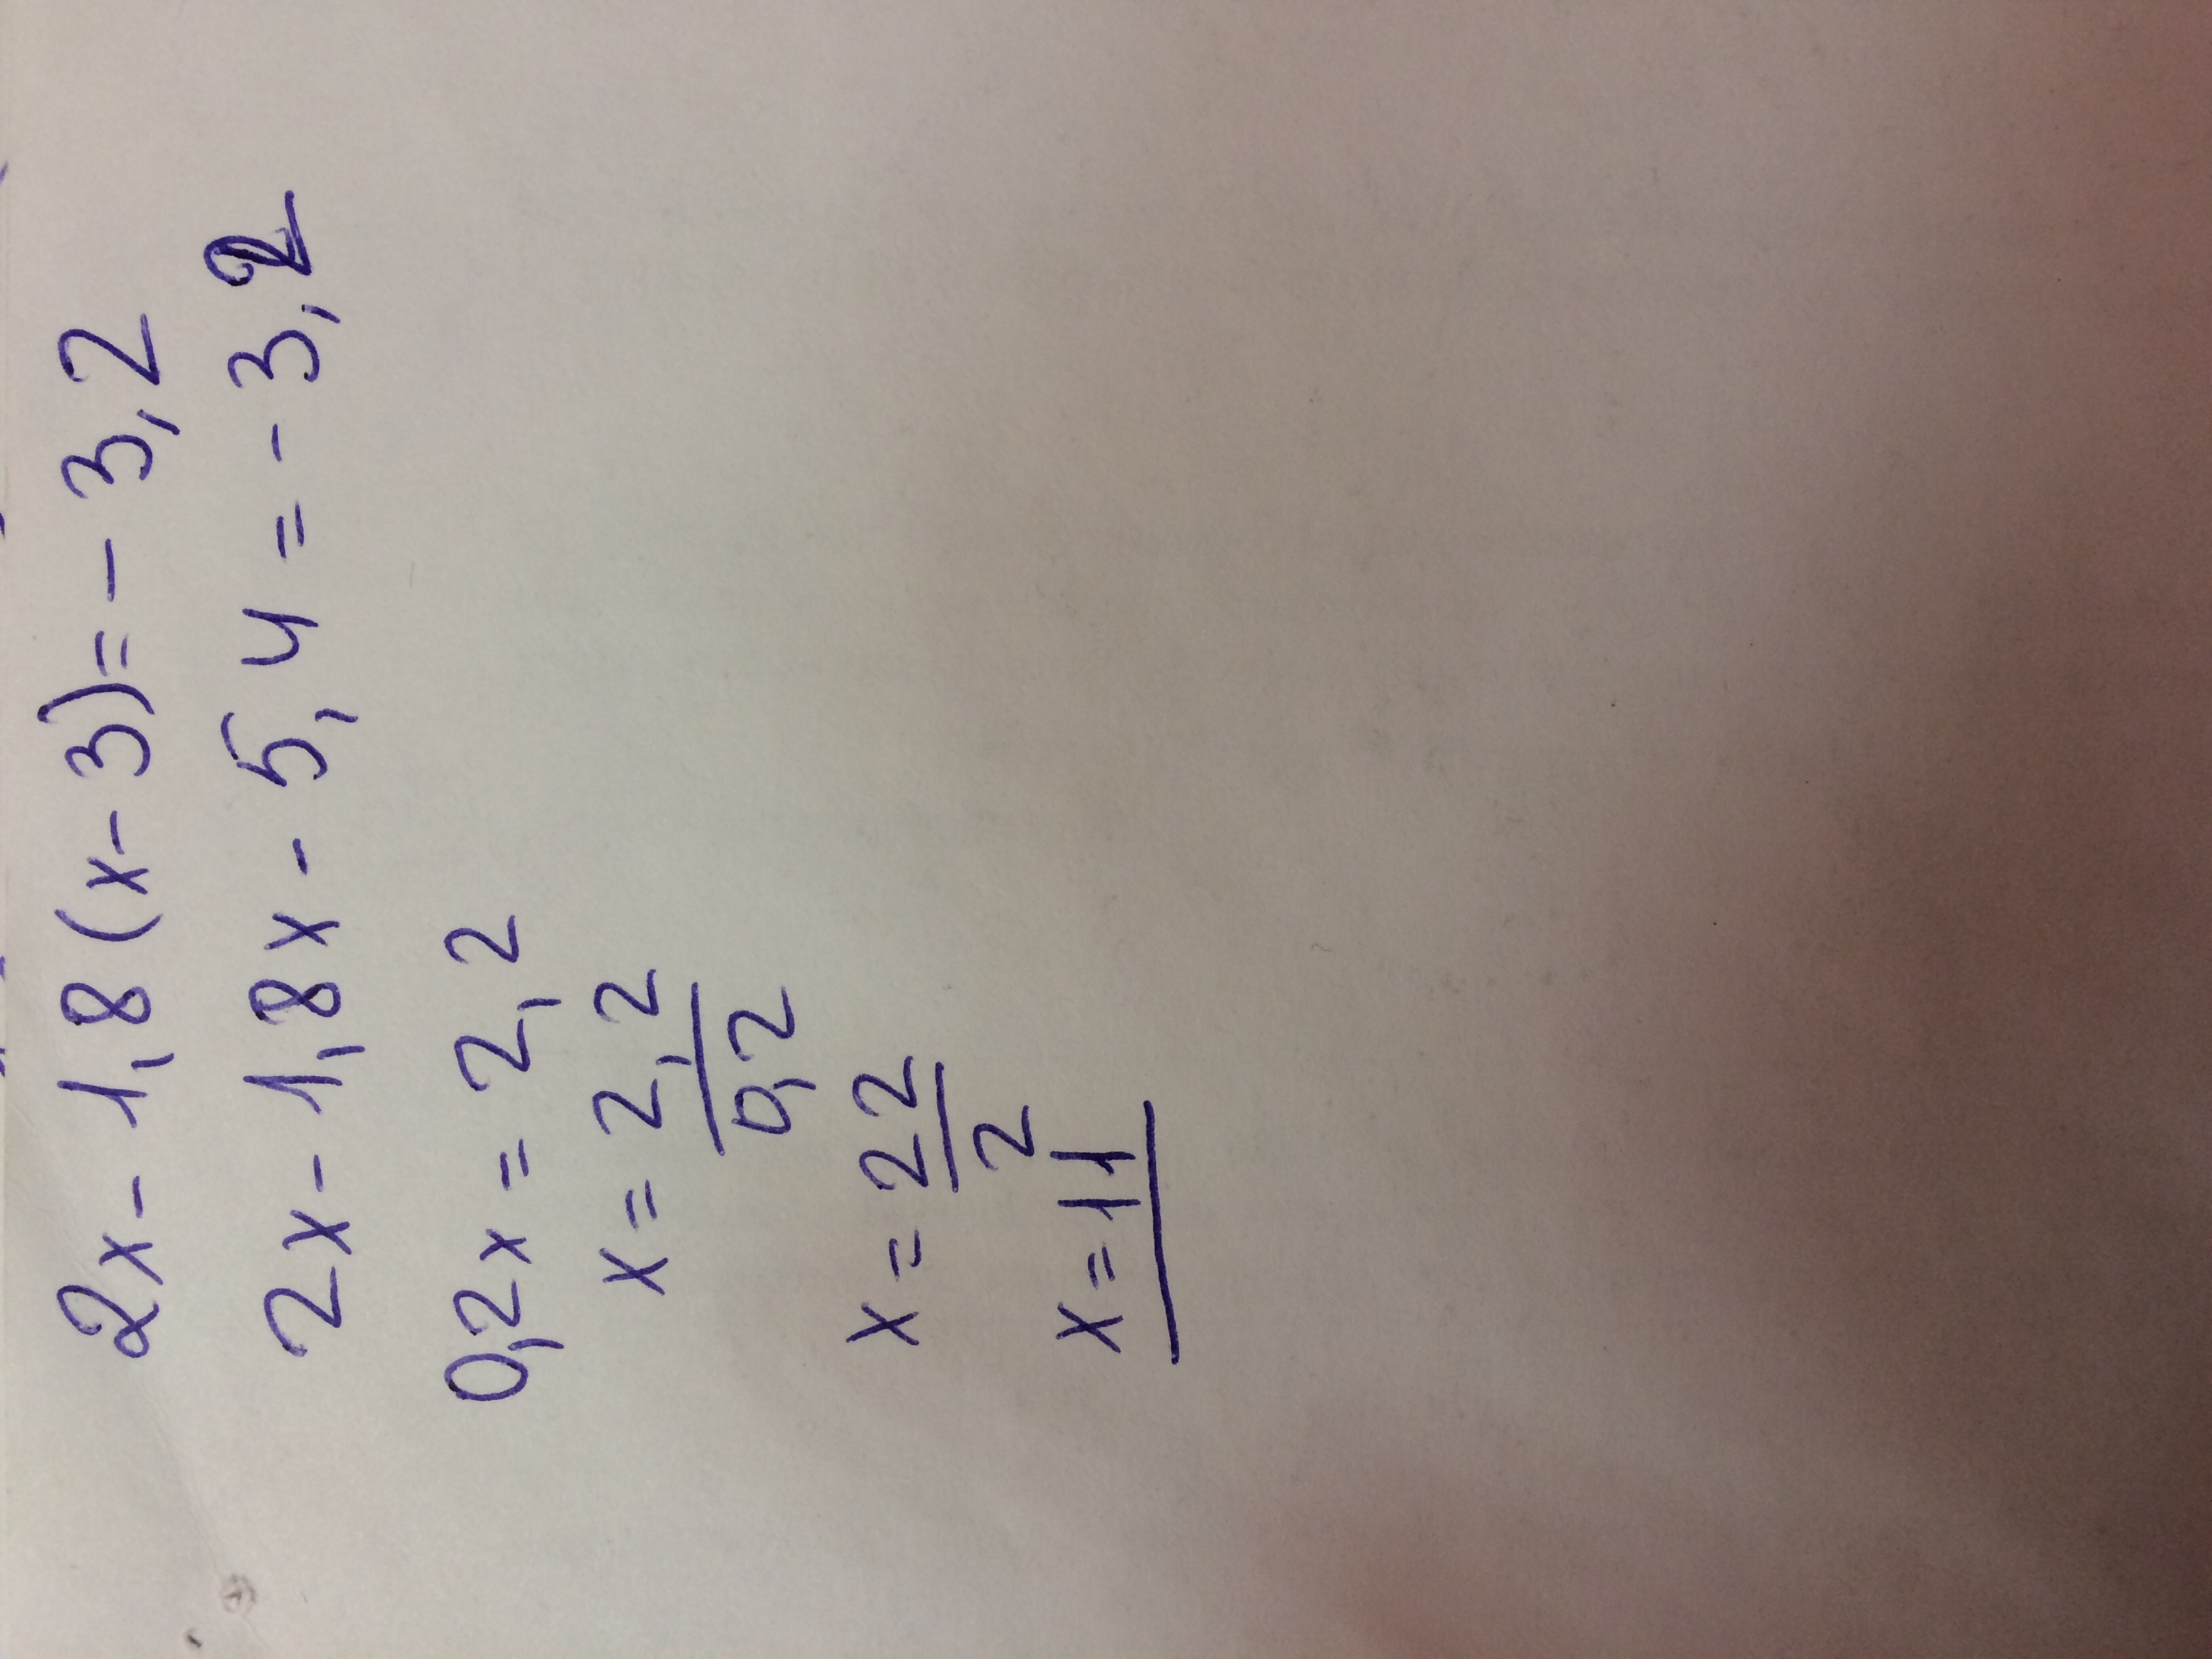 2x - 1,8 (x-3) = - 3,2
2x - 1,8x - 5,4 = - 3,2
0,2x = 2,2
x = 2,2
0,2
x = 22
2
x = 11